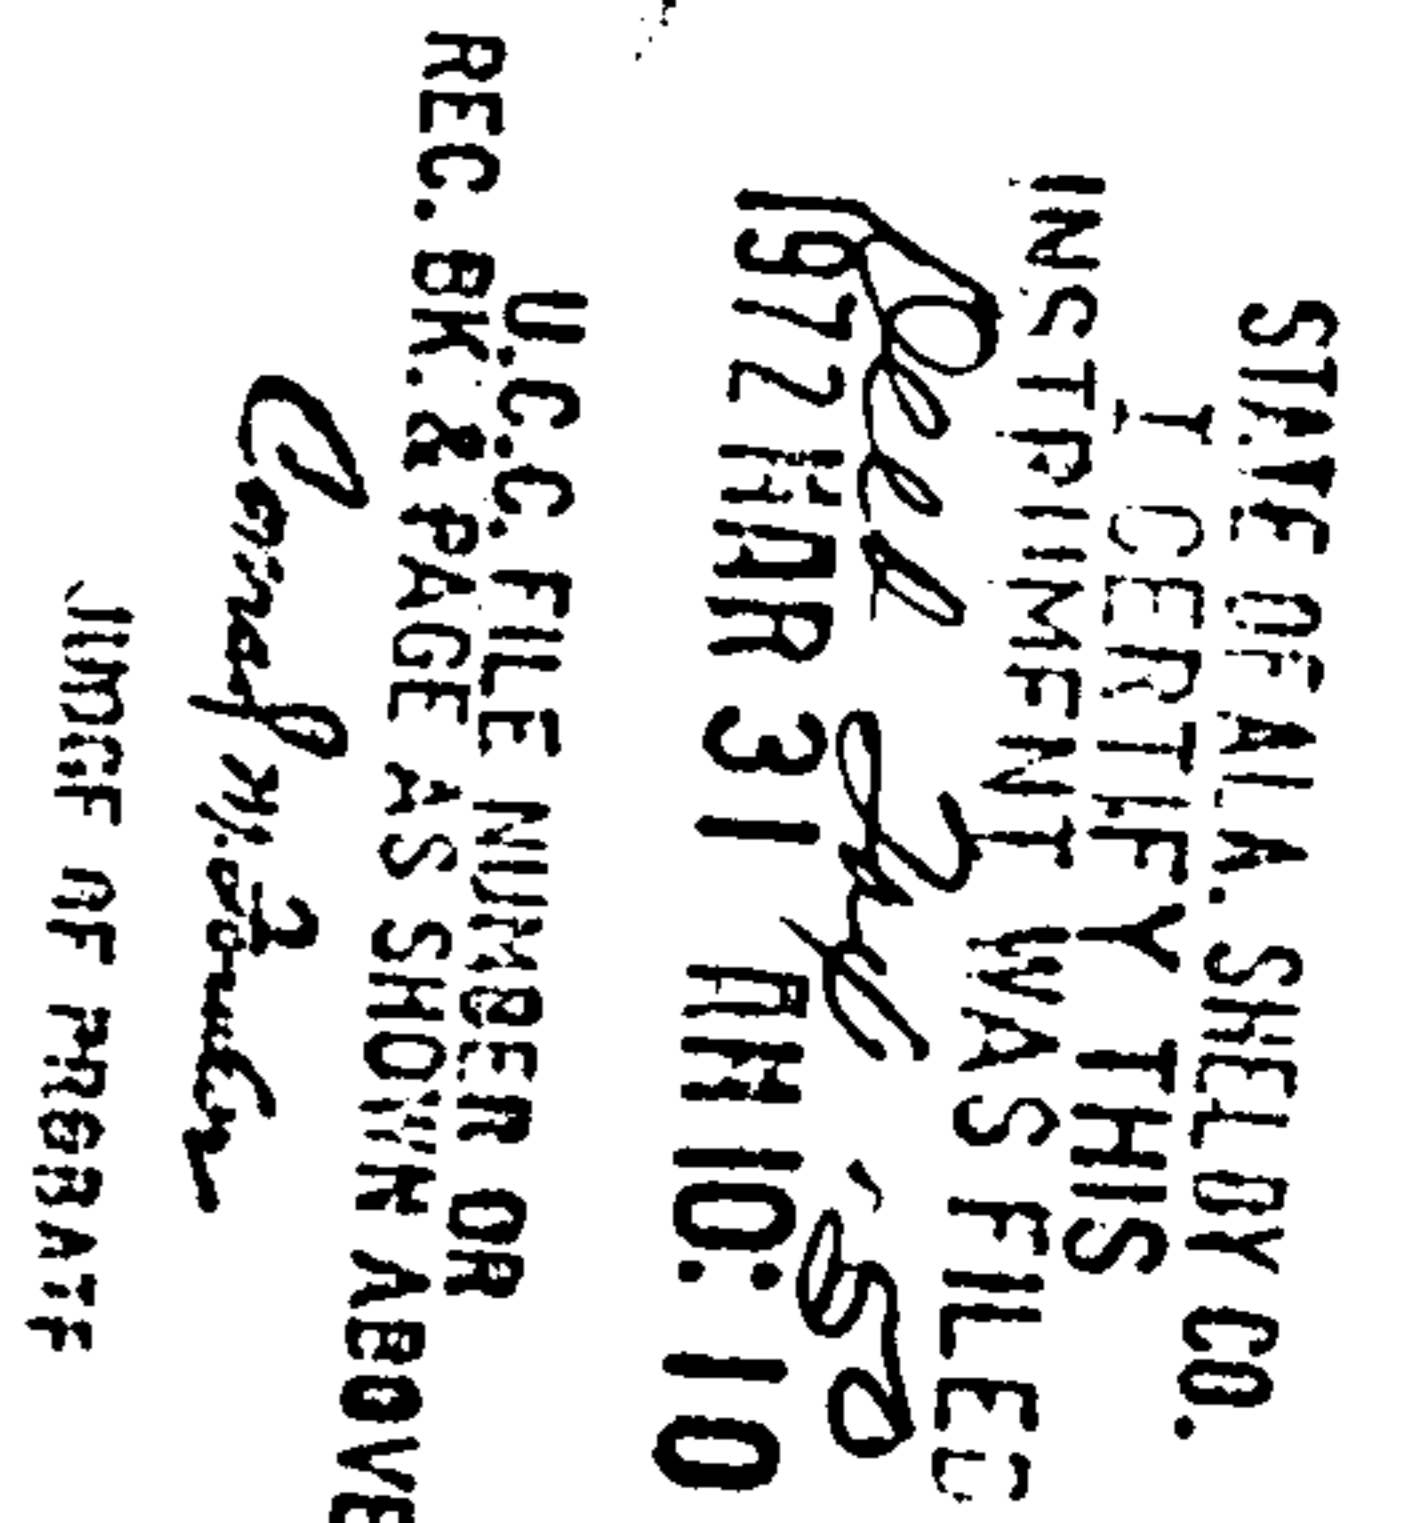 STATE OF ALA. SHELBY CO.
I CERTIFY THIS
INSTRUMENT WAS FILED
Deed Tax .50
1972 MAR 31 AM 10: 10
U.C.C. FILE NUMBER OR
REC. BK. & PAGE AS SHOWN ABOVE
JUDGE OF PROBATE